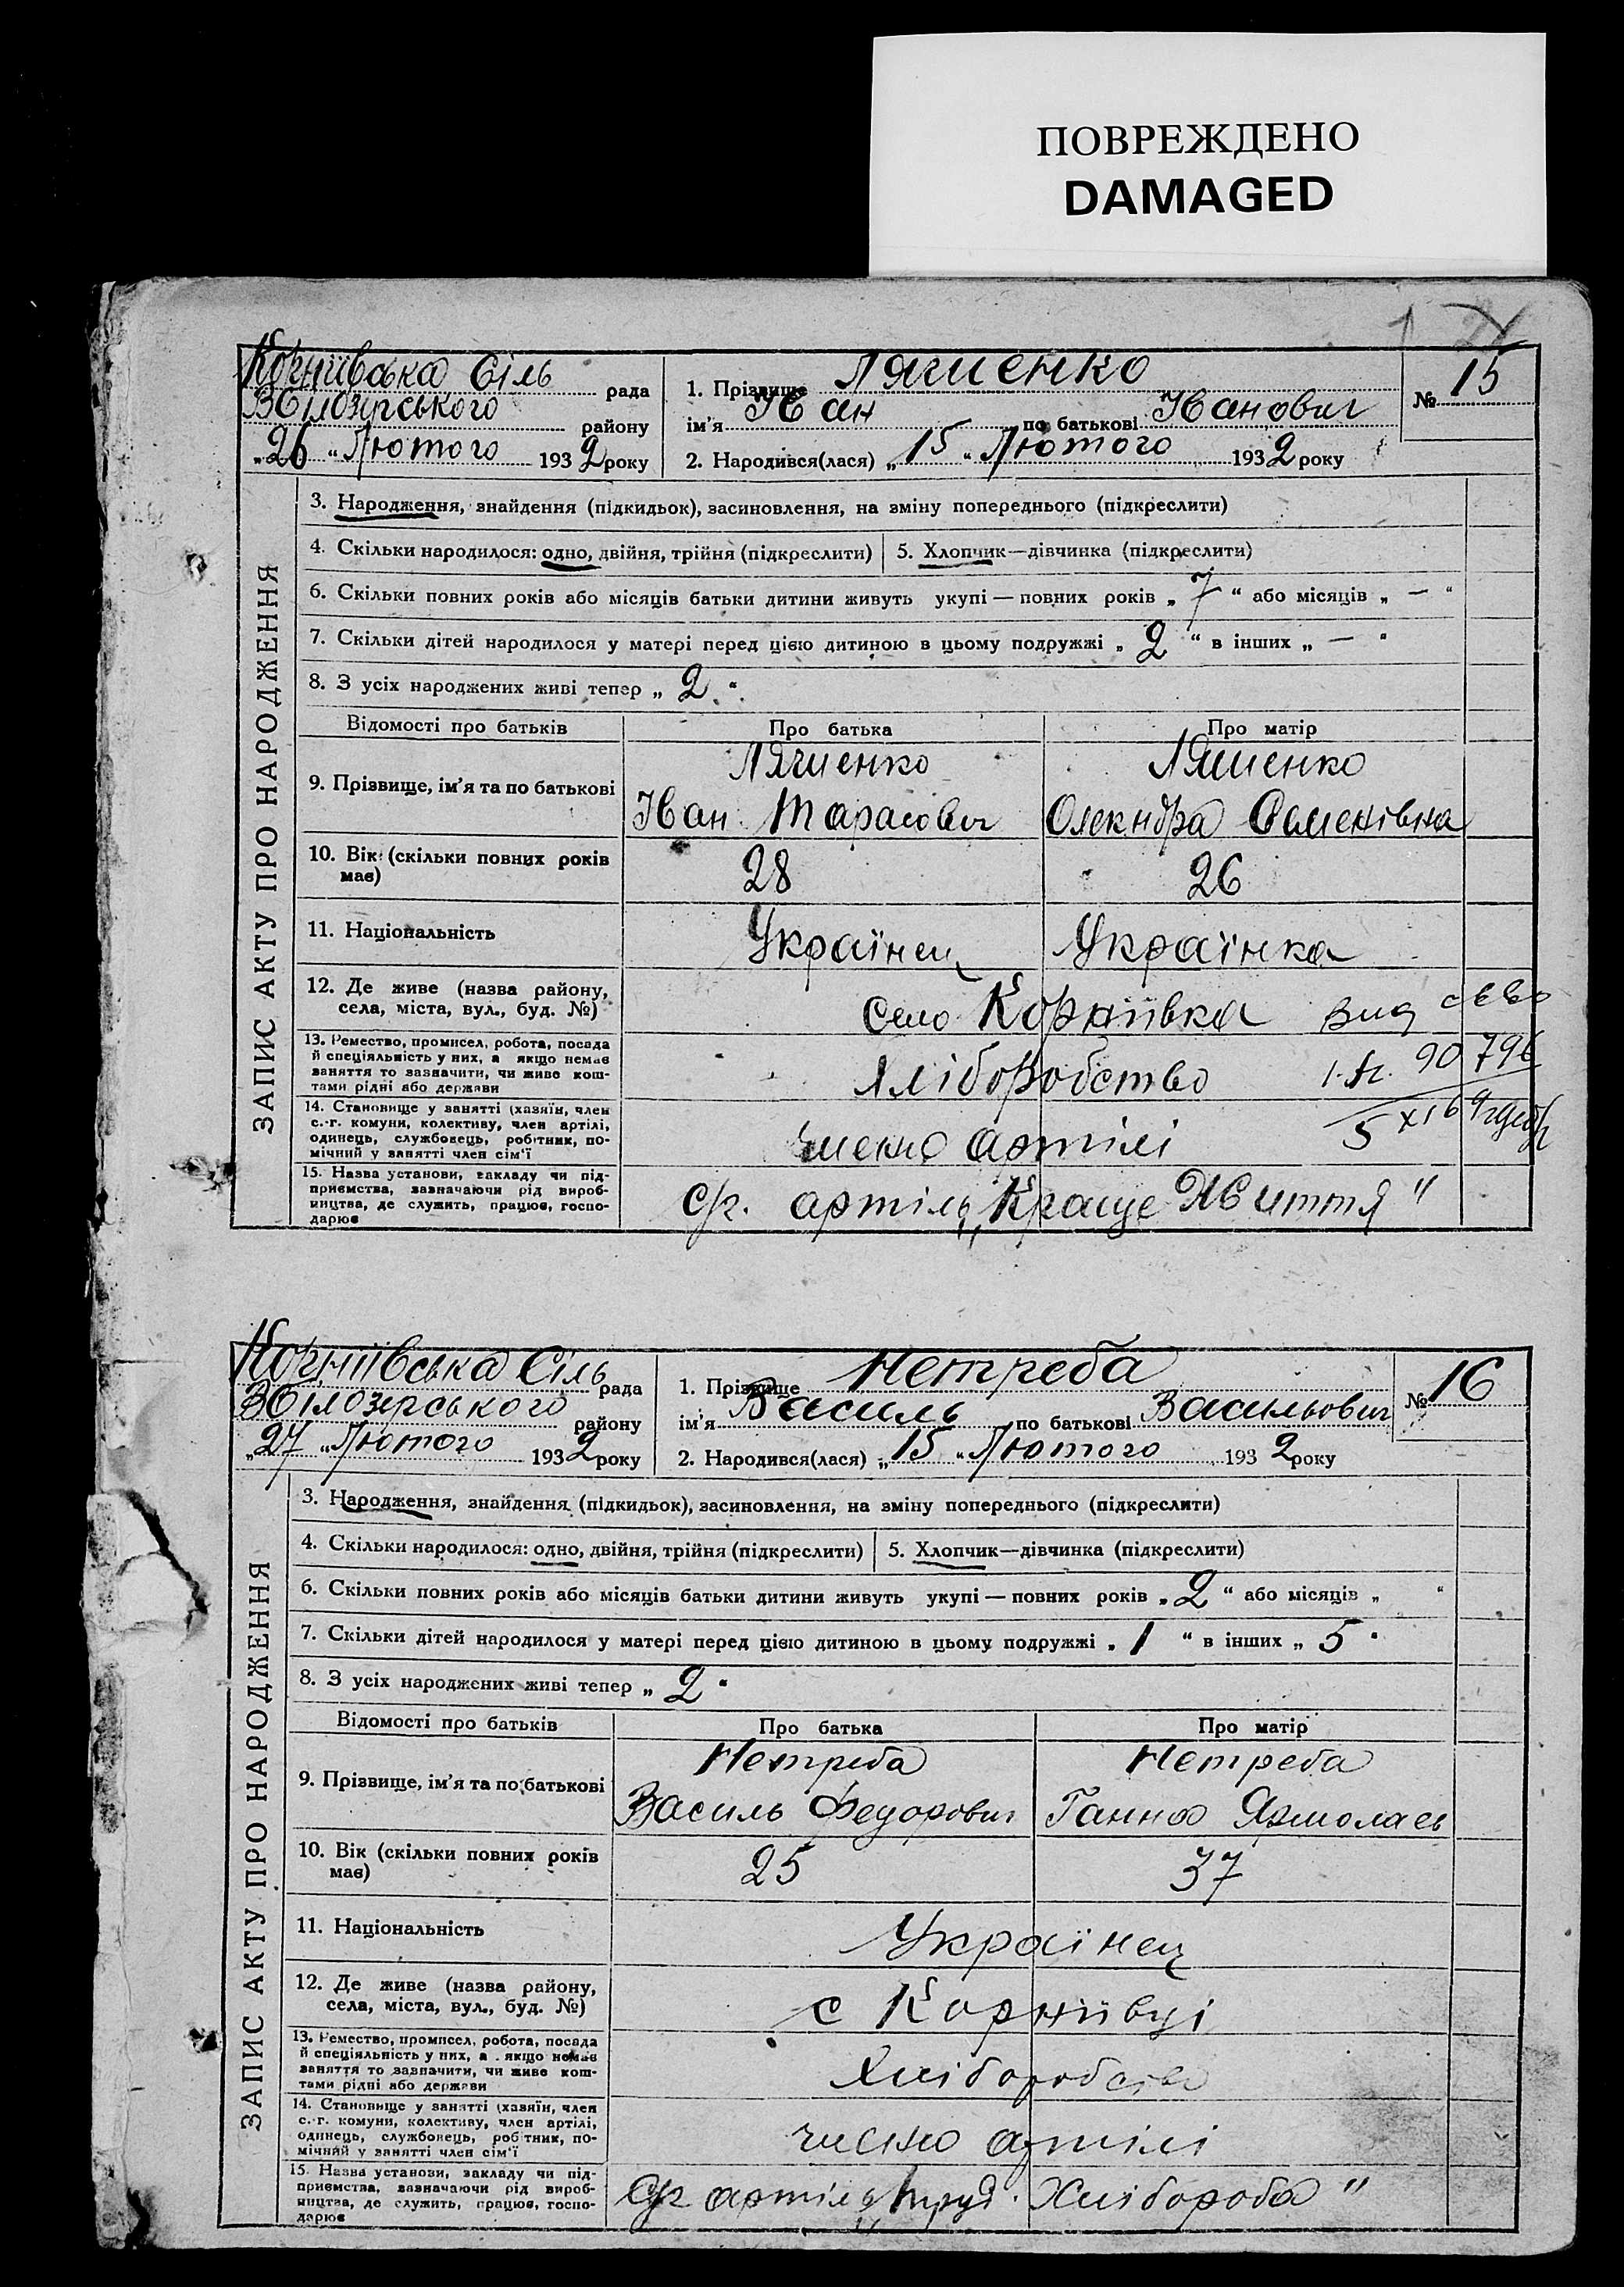 ПОВРЕЖДЕНО
DAMAGED
Корніївська Сіль рада
Білозірського району
„26“ Лютого 1932 року
1. Прізвище Ляшенко
ім’я Іван по батькові Іванович
2. Народився(лася) „15“ Лютого 1932 року
№ 15
ЗАПИС АКТУ ПРО НАРОДЖЕННЯ
3. Народження, знайдення (підкидьок), засиновлення, на зміну попереднього (підкреслити)
4. Скільки народилося: одно, двійня, трійня (підкреслити) 5. Хлопчик—дівчинка (підкреслити)
6. Скільки повних років або місяців батьки дитини живуть укупі — повних років „7“ або місяців „—“
7. Скільки дітей народилося у матері перед цією дитиною в цьому подружжі „2“ в інших „—“
8. З усіх народжених живі тепер „2“
Відомості про батьків Про батька Про матір
9. Прізвище, ім’я та по батькові
Ляшенко Ляшенко
Іван Тарасович Олекндра Семенівна
10. Вік (скільки повних років
має)
28 26
11. Національність Українец Українка
12. Де живе (назва району,
села, міста, вул., буд. №)
село Корніївка вид
13. Ремество, промисел, робота, посада
й спеціяльність у них, а якщо немає
заняття то зазначити, чи живе кош-
тами рідні або держави
Хліборобство 90 796
14. Становище у занятті (хазяїн, член
с.-г. комуни, колективу, член артілі,
одинець, службовець, робітник, по-
мічний у занятті член сім’ї
члено артілі 5 XI 69
15. Назва установи, закладу чи під-
приємства, зазначаючи рід вироб-
ництва, де служить, працює, госпо-
дарює
с/г. артіль „Краще Життя“
Корніївська Сіль рада
Білозірського району
„27“ Лютого 1932 року
1. Прізвище Нетреба
ім’я Василь по батькові Васильович
2. Народився(лася) „15“ Лютого 1932 року
№ 16
ЗАПИС АКТУ ПРО НАРОДЖЕННЯ
3. Народження, знайдення (підкидьок), засиновлення, на зміну попереднього (підкреслити)
4. Скільки народилося: одно, двійня, трійня (підкреслити) 5. Хлопчик—дівчинка (підкреслити)
6. Скільки повних років або місяців батьки дитини живуть укупі — повних років „2“ або місяців „ “
7. Скільки дітей народилося у матері перед цією дитиною в цьому подружжі „1“ в інших „5“
8. З усіх народжених живі тепер „2“
Відомості про батьків Про батька Про матір
9. Прізвище, ім’я та по батькові
Нетреба Нетреба
Василь Федорович Ганна Ярмолаев
10. Вік (скільки повних років
має)
25 37
11. Національність Українец
12. Де живе (назва району,
села, міста, вул., буд. №)
с Корніївці
13. Ремество, промисел, робота, посада
й спеціяльність у них, а якщо немає
заняття то зазначити, чи живе кош-
тами рідні або держави
Хліборобств
14. Становище у занятті (хазяїн, член
с.-г. комуни, колективу, член артілі,
одинець, службовець, робітник, по-
мічний у занятті член сім’ї
члено артілі
15. Назва установи, закладу чи під-
приємства, зазначаючи рід вироб-
ництва, де служить, працює, госпо-
дарює
с/г артіль „труд Хлібороба“